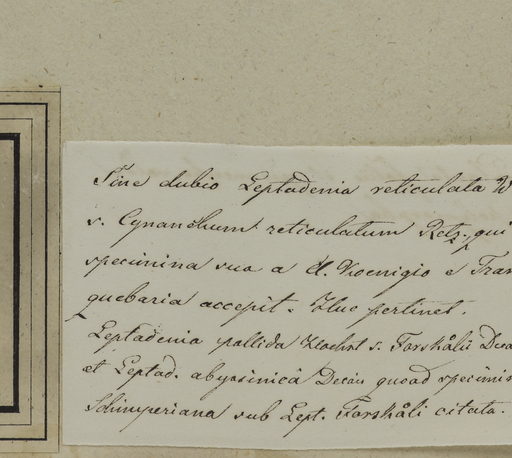 Sine dubio Leptadenia reticulata W
s. Cynanchum reticulatum Retz. qui
specimina sua a cl. Koenigio e Tran
quebaria accepit. Huc pertinet.
Leptadenia pallida Hochst s. Forskålii Deca
et Leptad. abyssinica Decais quoad specimin
Schimperiana sub Lept. Forskåli citata.